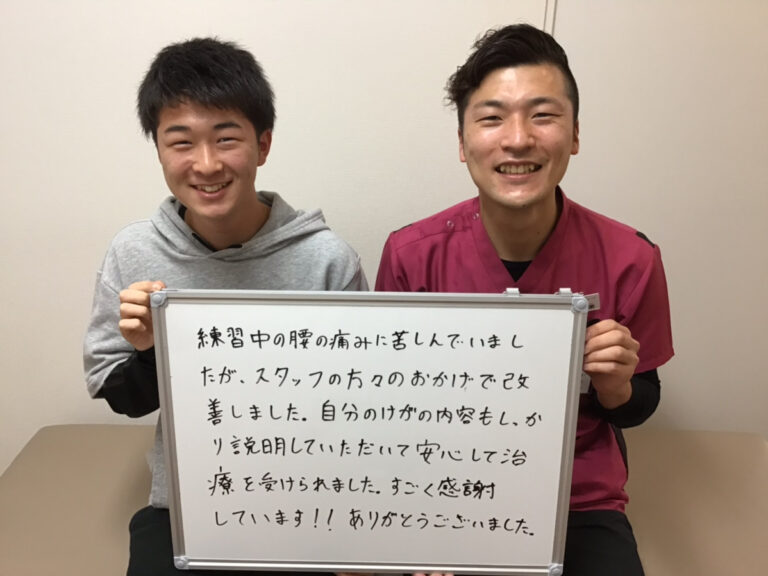 練習中の腰の痛みに苦しんでいまし
たが、スタッフの方々のおかげで改
善しました。自分のけがの内容もしっか
り説明していただいて安心して治
療を受けられました。すごく感謝
しています!! ありがとうございました。